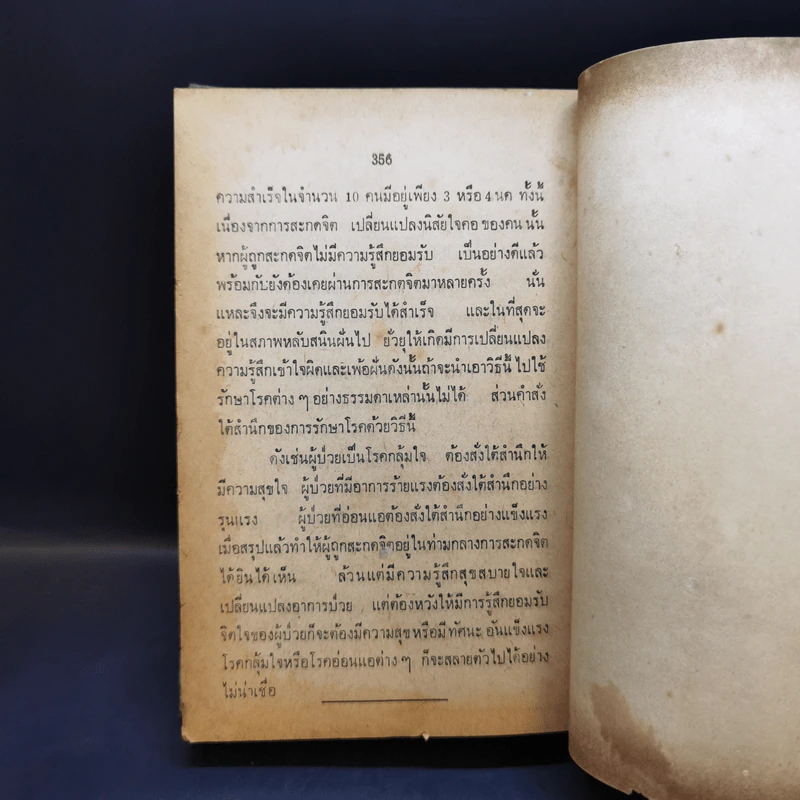 356
ความสำเร็จในจำนวน 10 คนมีอยู่เพียง 3 หรือ 4 นค ทั้งนี้
เนื่องจากการสะกดจิต เปลี่ยนแปลงนิสัยใจคอ ของคน นั้น
หากผู้ถูกสะกดจิตไม่มีความรู้สึกยอมรับ เป็นอย่างดีแล้ว
พร้อมกับยังต้องเคยผ่านการสะกดจิตมาหลายครั้ง นั่น
แหละจึงจะมีความรู้สึกยอมรับได้สำเร็จ และในที่สุดจะ
อยู่ในสภาพหลับสนินผันไป ยั่วยุให้เกิดมีการเปลี่ยนแปลง
ความรู้สึกเข้าใจผิดและเพ้อฝันดังนั้นถ้าจะนำเอาวิธีนี้ ไปใช้
รักษาโรคต่าง ๆ อย่างธรรมดาเหล่านั้นไม่ได้ ส่วนคำสั่ง
ใต้สำนึกของการรักษาโรคด้วยวิธีนี้
ดังเช่นผู้ป่วยเป็นโรคกลุ้มใจ ต้องสั่งใต้สำนึกให้
มีความสุขใจ ผู้ป่วยที่มีอาการร้ายแรงต้องสั่งใต้สำนึกอย่าง
รุนแรง ผู้ป่วยที่อ่อนแอต้องสั่งใต้สำนึกอย่างแข็งแรง
เมื่อสรุปแล้วทำให้ผู้ถูกสะกดจิตอยู่ในท่ามกลางการสะกดจิต
ได้ยิน ได้ เห็น ล้วนแต่มีความรู้สึกสุขสบายใจและ
เปลี่ยนแปลงอาการป่วย แต่ต้องหวังให้มีการรู้สึกยอมรับ
จิตใจของผู้ป่วยก็จะต้องมีความสุขหรือมีทัศนะ อันแข็งแรง
โรคกลุ้มใจหรือโรคอ่อนแอต่าง ๆ ก็จะสลายตัวไปได้อย่าง
ไม่น่าเชื่อ